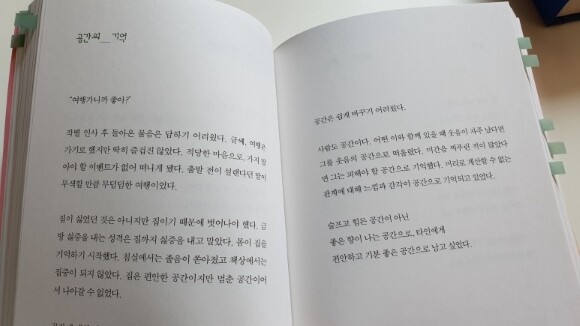 공간의__기억
"여행가니까 좋아?"
작별 인사 후 돌아온 물음은 답하기 어려웠다. 글쎄, 여행은
가기로 했지만 딱히 즐겁진 않았다. 적당한 마음으로, 가지 말
아야 할 이벤트가 없어 떠나게 됐다. 출발 전이 설렌다던 말이
무색할 만큼 무덤덤한 여행이었다.
집이 싫었던 것은 아니지만 집이기 때문에 벗어나야 했다. 금
방 싫증을 내는 성격은 집까지 싫증을 내고 말았다. 몸이 집을
기억하기 시작했다. 침실에서는 졸음이 쏟아졌고 책상에서는
집중이 되지 않았다. 집은 편안한 공간이지만 멈춘 공간이어
서 나아갈 수 없었다.
공간은 쉽게 바꾸기 어려웠다.
사람도 공간이다. 어떤 이와 함께 있을 때 웃음이 자주 났다면
그를 웃음의 공간으로 떠올렸다. 미간을 찌푸린 적이 많았다
면 그는 피해야 할 공간으로 기억했다. 머리로 계산할 수 없는
관계에 대해 느낌과 감각이 공간으로 기억되고 있었다.
슬프고 힘든 공간이 아닌
좋은 향이 나는 공간으로, 타인에게
편안하고 기분 좋은 공간으로 남고 싶었다.